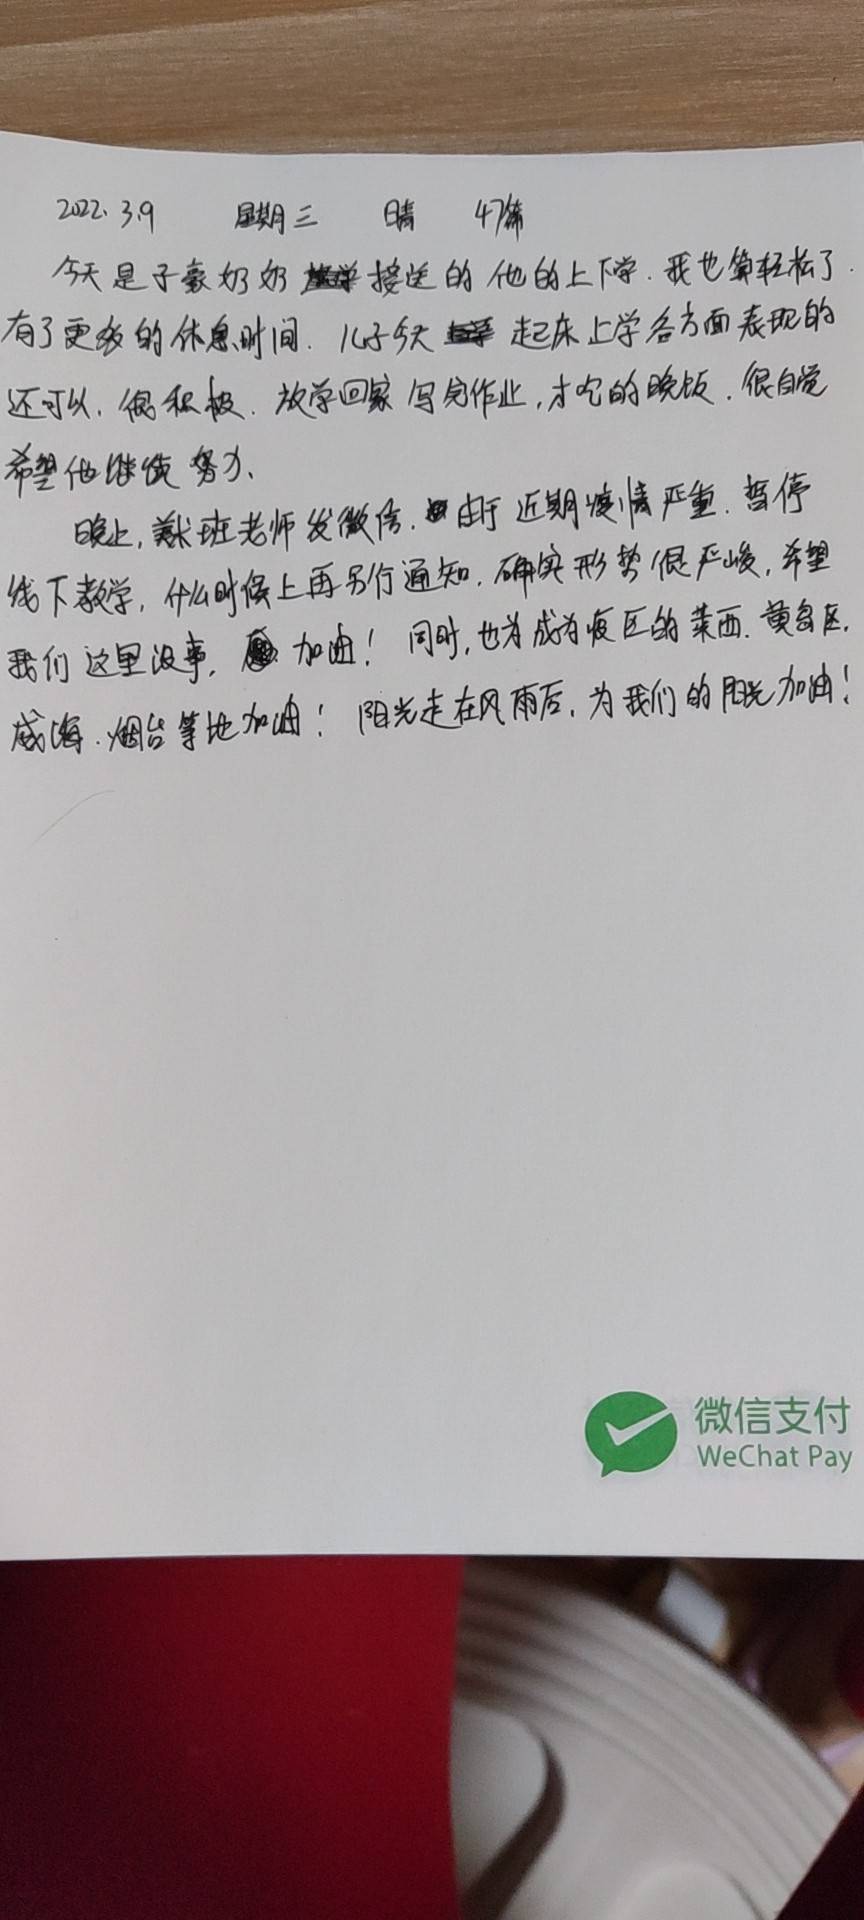 2022.3.9 星期三 晴 47篇
今天是子豪奶奶接送的他的上下学.我也算轻松了.
有了更多的休息时间.儿子今天起床上学各方面表现的
还可以,很积极.放学回家写完作业,才吃的晚饭.很自觉
希望他继续努力、
晚上,美术班老师发微信.由于近期疫情严重.暂停
线下教学,什么时候上再另行通知.确实形势很严峻,希望
我们这里没事,加油!同时,也为成为疫区的莱西.黄岛区,
威海.烟台等地加油!阳光走在风雨后,为我们的阳光加油!
微信支付
WeChat Pay